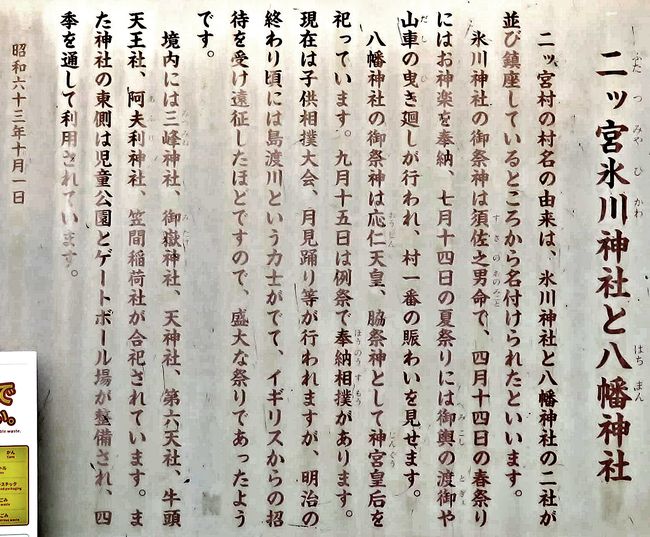 二ッ宮氷川神社と八幡神社
二ッ宮村の村名の由来は、氷川神社と八幡神社の二社が
並び鎮座しているところから名付けられたといいます。
氷川神社の御祭神は須佐之男命で、四月十四日の春祭り
にはお神楽を奉納、七月十四日の夏祭りには御輿の渡御や
山車の曳き廻しが行われ、村一番の賑わいを見せます。
八幡神社の御祭神は応仁天皇、脇祭神として神宮皇后を
祀っています。九月十五日は例祭で奉納相撲があります。
現在は子供相撲大会、月見踊り等が行われますが、明治の
終わり頃には島渡川という力士がでて、イギリスからの招
待を受け遠征したほどですので、盛大な祭りであったよう
です。
境内には三峰神社、御嶽神社、天神社、第六天社、牛頭
天王社、阿夫利神社、笠間稲荷社が合祀されています。ま
た神社の東側は児童公園とゲートボール場が整備され、四
季を通して利用されています。
昭和六十三年十月一日